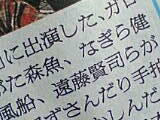 に出演した、ガロ
た森魚、なぎら健
風船、遠藤賢司らが
ずさんだり手拍